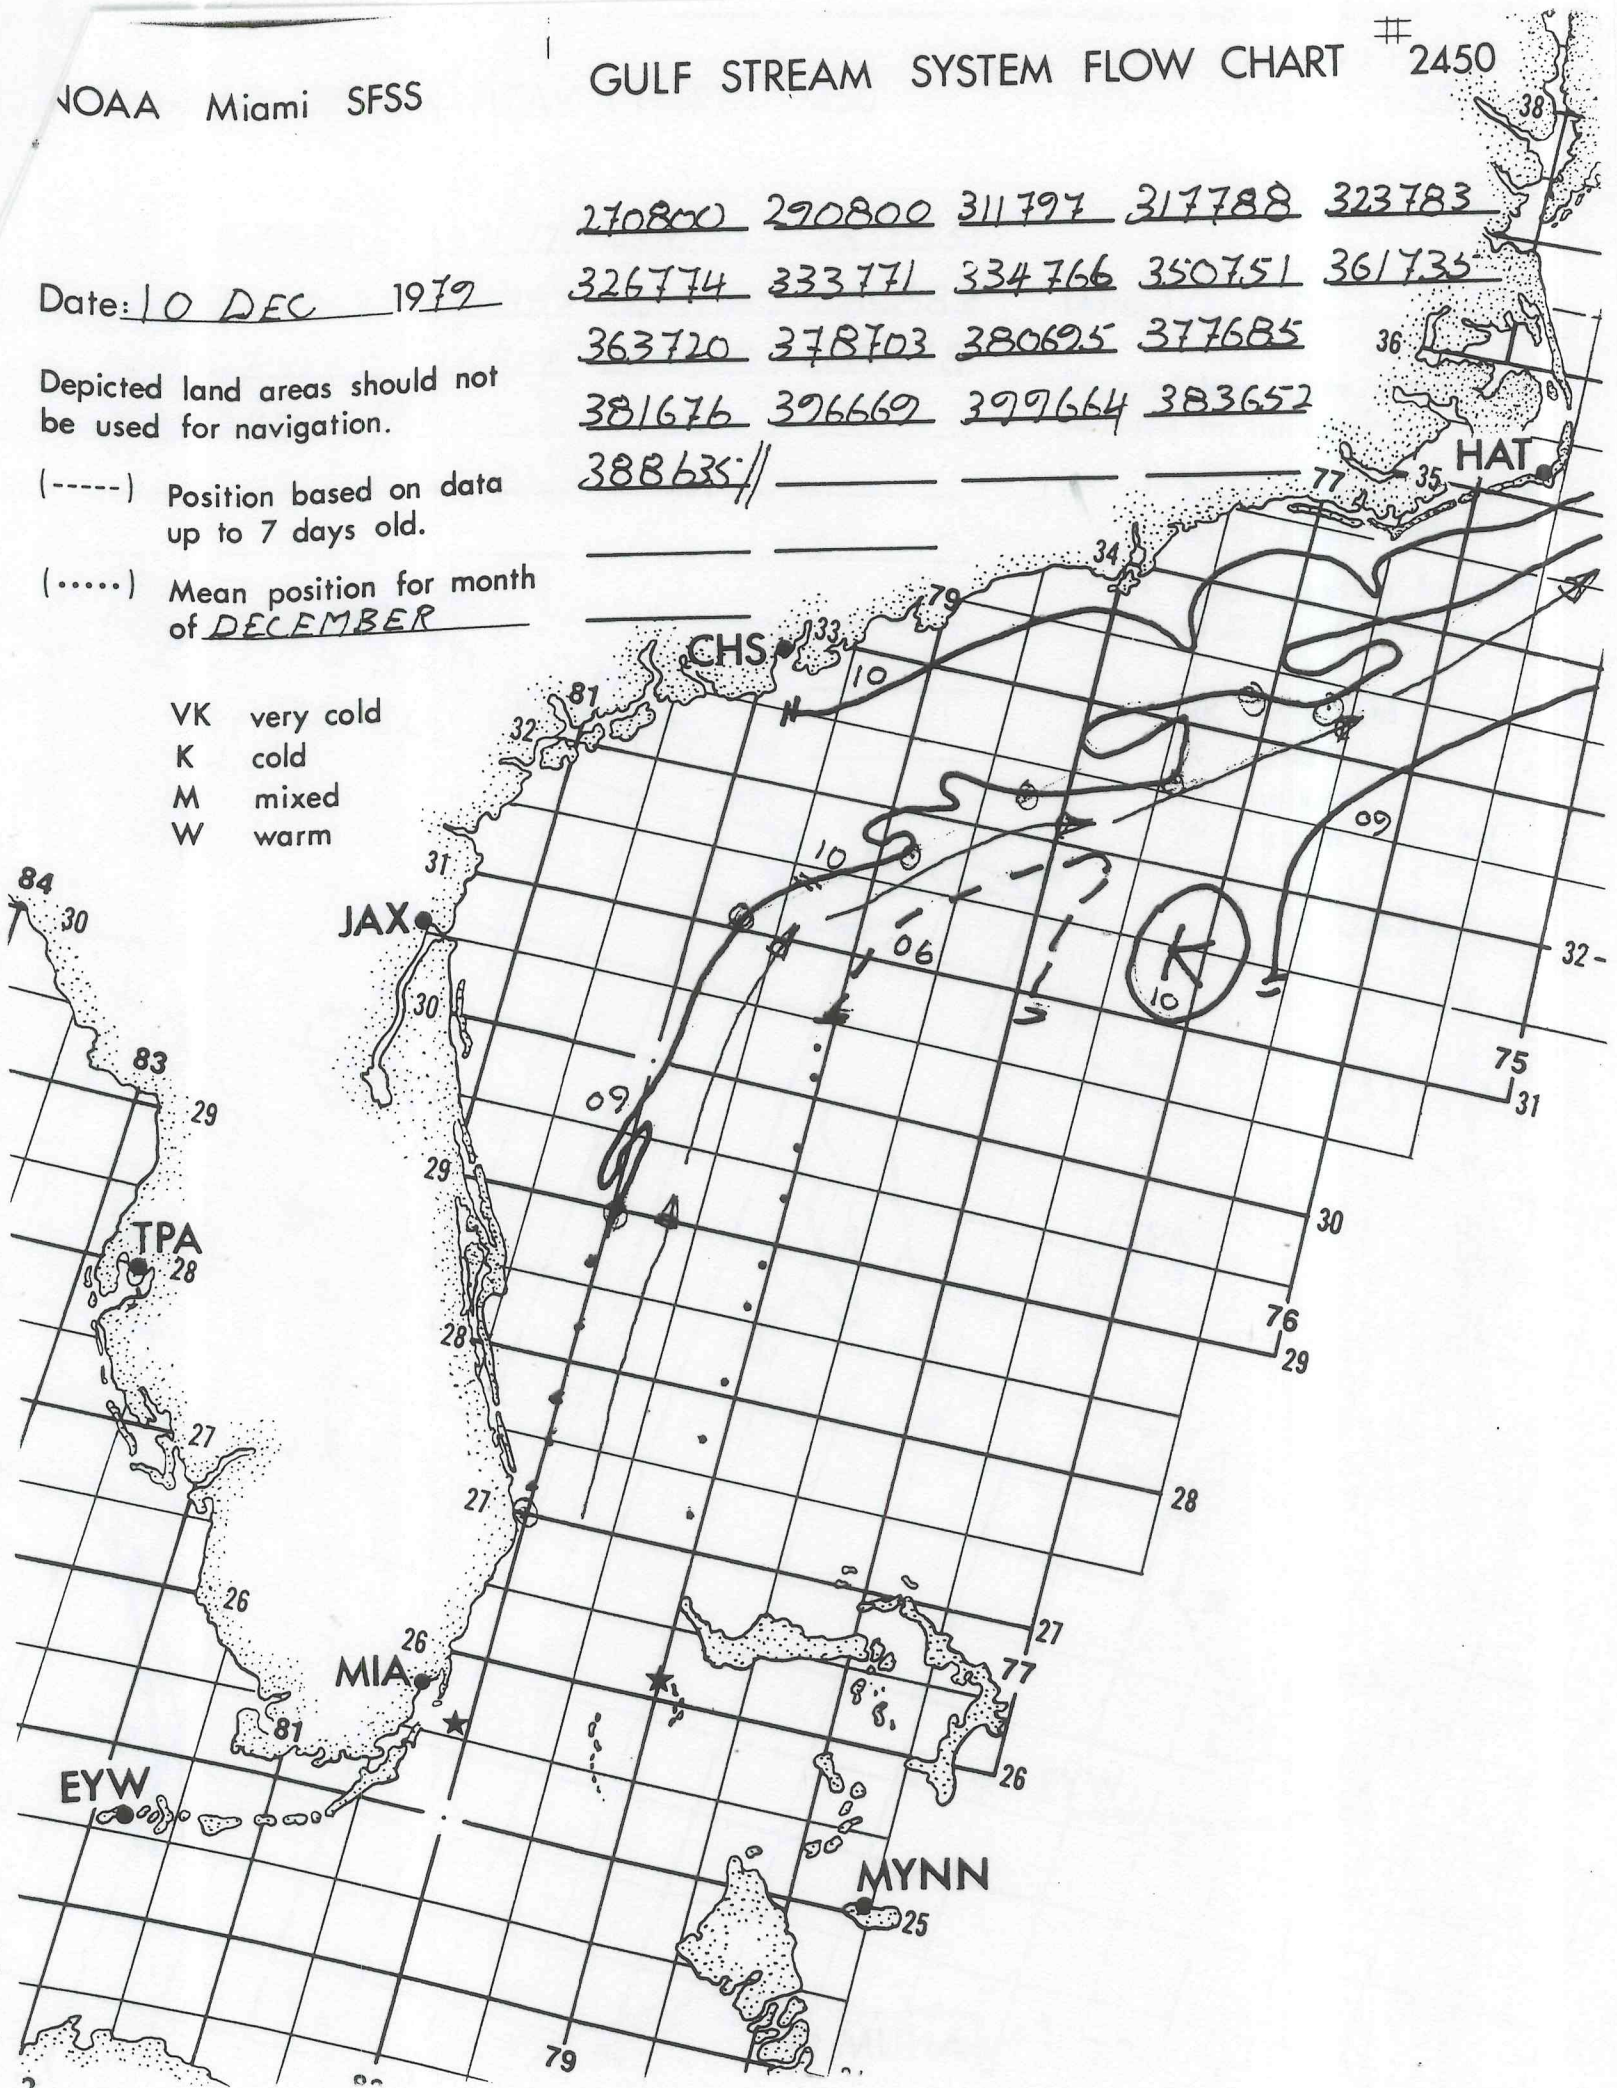 NOAA Miami SFSS
GULF STREAM SYSTEM FLOW CHART #2450
270800 290800 311797 317788 323783
326774 333771 334766 350751 361735
363720 378703 380695 377685
381676 396669 399664 383652
388635//
Date: 10 DEC 1979
Depicted land areas should not
be used for navigation.
(-----) Position based on data
up to 7 days old.
(.....) Mean position for month
of DECEMBER
VK very cold
K cold
M mixed
W warm
38
36
HAT
35
77
34
79
33
CHS
10
81
32
09
10
31
84
30
JAX
06
K
10
32
30
75
31
83
29
09
29
30
TPA
28
28
76
29
27
27
28
26
26
27
MIA
77
81
26
EYW
MYNN
25
79